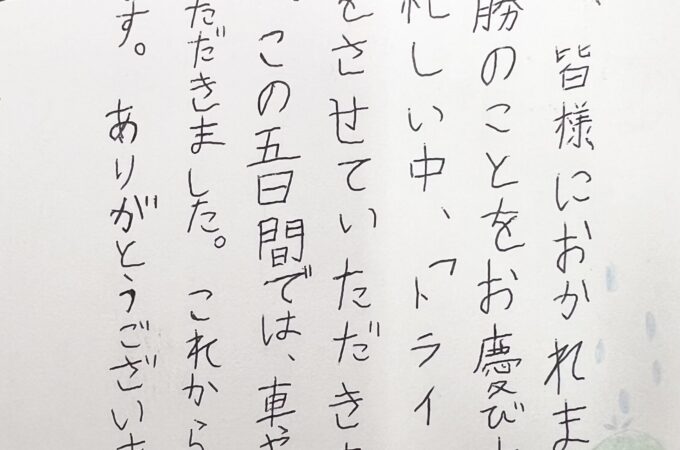 皆様におかれま
勝のことをお慶び
札しい中、「トライ
をさせていただき
。この五日間では、車や
ただきました。これから
す。ありがとうございま